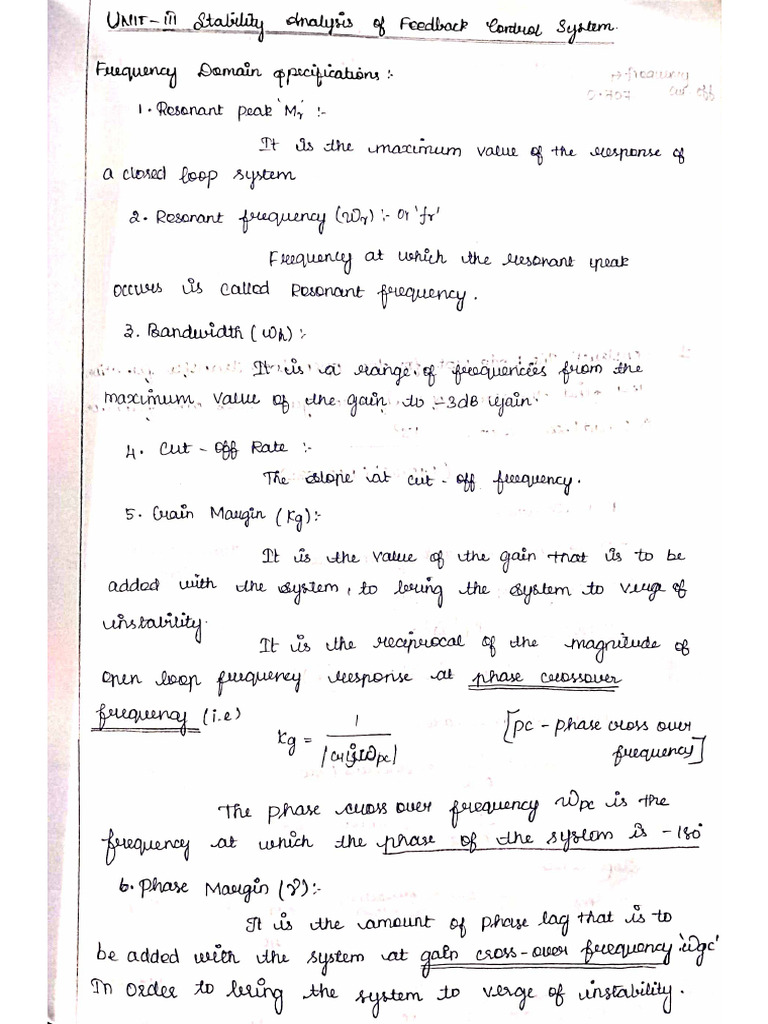 UNIT-III Stability Analysis of Feedback Control System.
Frequency Domain specifications :-
→ frequency
0.707 cut off
1. Resonant peak 'Mr' :-
It is the maximum value of the response of
a closed loop system
2. Resonant frequency (ωr) :- or 'fr'
Frequency at which the resonant peak
occurs is called Resonant frequency.
3. Bandwidth (ωb) :-
It is a range of frequencies from the
maximum value of the gain to -3dB gain.
4. Cut-off Rate :-
The slope at cut-off frequency.
5. Gain Margin (Kg) :-
It is the value of the gain that is to be
added with the system, to bring the system to verge of
instability.
It is the reciprocal of the magnitude of
open loop frequency response at phase crossover
frequency (i.e)
Kg = 1 / |G(jωpc)| [pc - phase cross over
frequency]
The phase cross over frequency ωpc is the
frequency at which the phase of the system is -180°
6. Phase Margin (γ) :-
It is the amount of phase lag that is to
be added with the system at gain cross-over frequency 'ωgc'
In order to bring the system to verge of instability.